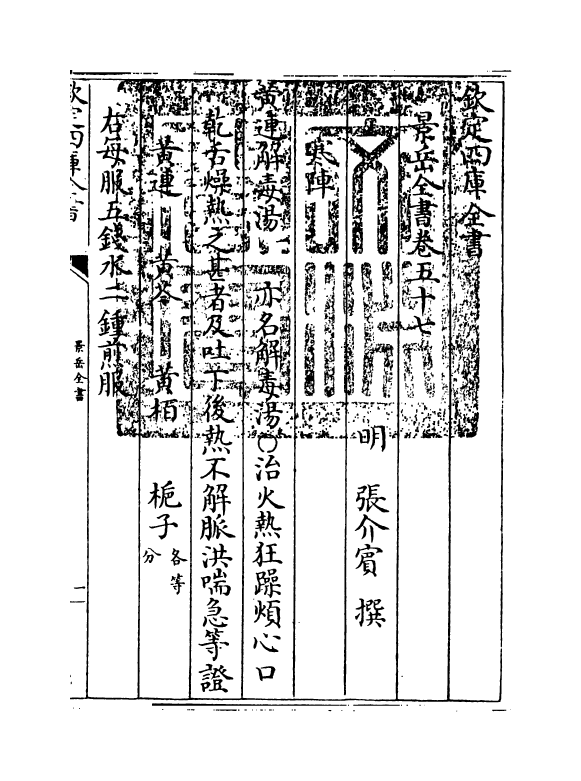 欽定四庫全書
景岳全書卷五十七
明 張介賓 撰
寒陣
黃連解毒湯 亦名解毒湯〇治火熱狂躁煩心口
乾舌燥熱之甚者及吐下後熱不解脈洪喘急等證
黃連 黃芩 黃栢 梔子各等分
右每服五錢水二鍾煎服
欽定四庫全書
景岳全書